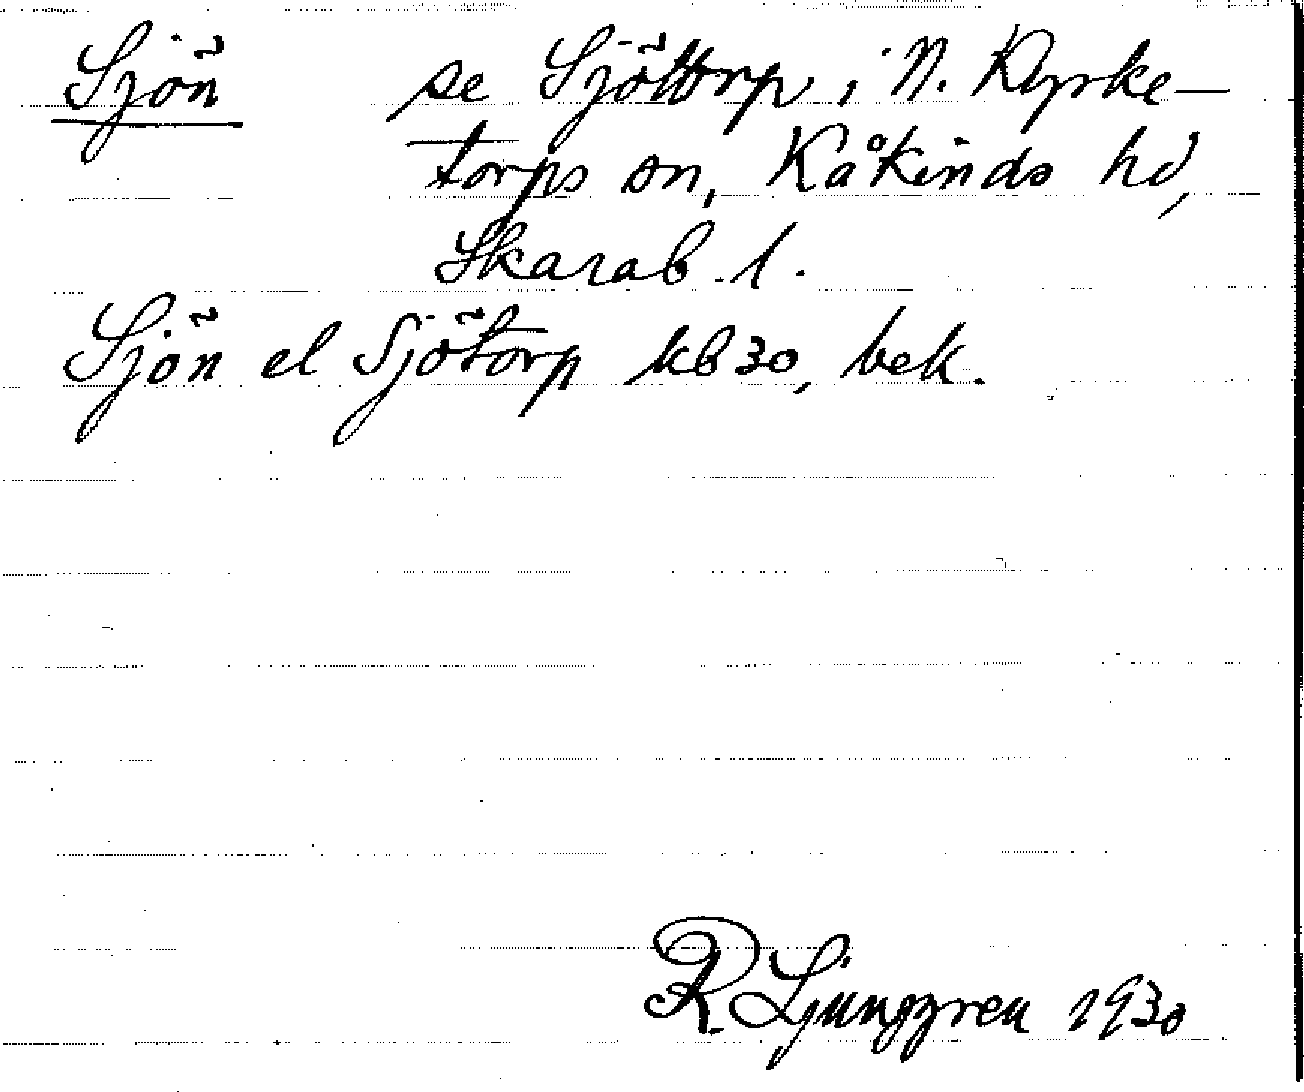 Sjön se Sjöttorp, i N. Kyrke-
torps sn, Kåkinds hd,
Skarab. l.
Sjön el Sjötorp kb 30, bek.
R Ljunggren 1930